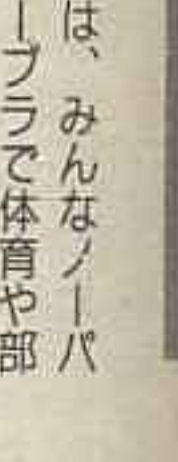 は、みんなノーパ
ーブラで体育や部